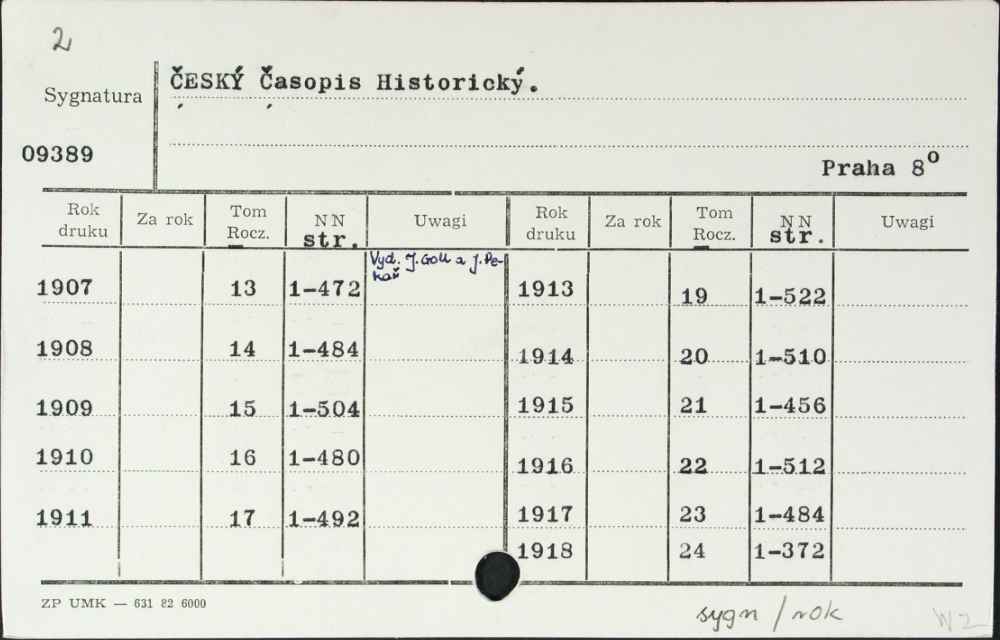 2
Sygnatura
ČESKÝ Časopis Historický.
09389
Praha 8°
Rok druku Za rok Tom Rocz. NN str. Uwagi Rok druku Za rok Tom Rocz. NN str. Uwagi
Vyd. J. Goll a J. Pe-
kař
1907 13 1-472 1913 19 1-522
1908 14 1-484 1914 20 1-510
1909 15 1-504 1915 21 1-456
1910 16 1-480 1916 22 1-512
1911 17 1-492 1917 23 1-484
1918 24 1-372
ZP UMK — 631 82 6000
sygn / rok
W2